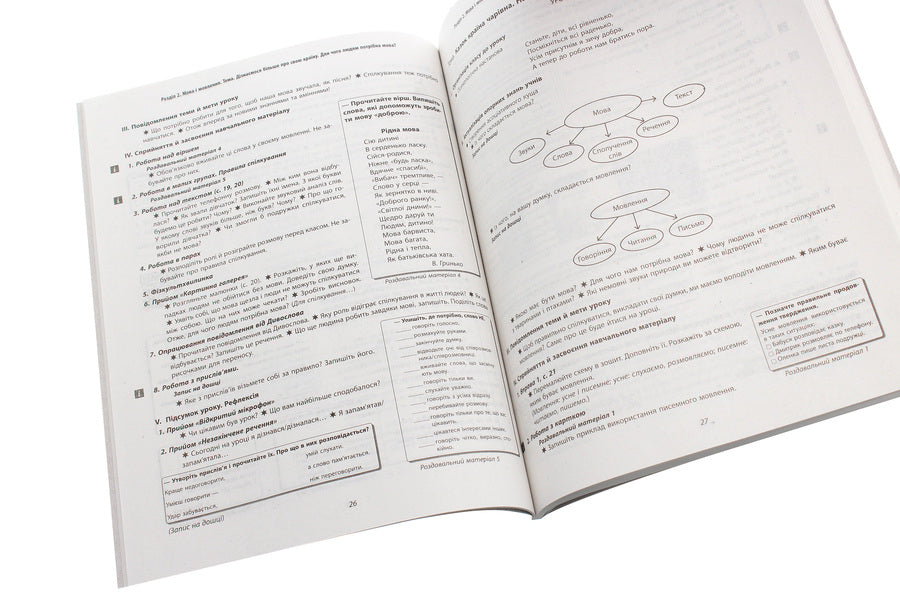 Розділ 2. Мова і мовлення. Тема. Дізнаємося більше про свою країну. Для чого людям потрібна мова?
III. Повідомлення теми й мети уроку
✶ Що потрібно робити для того, щоб наша мова звучала, як пісня? ✶ Спілкування теж потрібно
навчатися. ✶ Отож вперед за новими знаннями та вміннями!
IV. Сприйняття й засвоєння навчального матеріалу
1. Робота над віршем
Роздавальний матеріал 4
✶ Обов'язково вживайте ці слова у своєму мовленні. Не за-
бувайте про них.
2. Робота в малих групах. Правила спілкування
Роздавальний матеріал 5
3. Робота над текстом (с. 19, 20)
✶ Прочитайте телефонну розмову. ✶ Між ким вона відбу-
лася? ✶ Як звали дівчаток? Запишіть їхні імена. З якої букви
будемо це робити? Чому? ✶ Виконайте звуковий аналіз слів.
У якому слові звуків більше, ніж букв? Чому? ✶ Про що го-
ворили дівчатка? ✶ Чи змогли б подружки спілкуватися,
якби не мова?
4. Робота в парах
✶ Розподіліть ролі й розіграйте розмову перед класом. Не за-
бувайте про правила спілкування.
5. Фізкультхвилинка
6. Прийом «Картинна галерея»
✶ Розгляньте малюнки (с. 20). ✶ Розкажіть, у яких ще ви-
падках людям не обійтися без мови. Доведіть свою думку.
✶ Уявіть собі, що мова щезла і люди не можуть спілкуватися
між собою. Що на них може чекати? ✶ Зробіть висновок.
Отже, для чого людям потрібна мова? (Для спілкування...)
7. Опрацювання повідомлення від Дивослова
✶ Прочитайте повідомлення від Дивослова. ✶ Яку роль відіграє спілкування в житті людей? ✶ Як це
відбувається? Запишіть це речення. ✶ Що ще людина робить завдяки мові, запишіть. Поділіть слова
рисочками для переносу.
8. Робота з прислів'ями.
Запис на дошці
✶ Яке з прислів'їв візьмете собі за правило? Запишіть його.
V. Підсумок уроку. Рефлексія
1. Прийом «Відкритий мікрофон»
✶ Чи цікавим був урок? ✶ Що вам найбільше сподобалося?
2. Прийом «Незакінчене речення»
✶ Сьогодні на уроці я дізнався/дізналася... ✶ Я запам'ятав/
запам'ятала...
— Утворіть прислів'я і прочитайте їх. Про що в них розповідається?
Краще недоговорити,
умій слухати.
Умієш говорити —
а слово пам'ятається.
Удар забувається,
ніж переговорити.
(Запис на дошці)
— Прочитайте вірш. Випишіть
слова, які допоможуть зроби-
ти мову «доброю».
Рідна мова
Сію дитині
В серденько ласку.
Сійся-родися,
Ніжне «будь ласка»,
Вдячне «спасибі»,
«Вибач» тремтливе, —
Слово у серці —
Як зернятко в ниві.
«Доброго ранку!»,
«Світлої днини!» —
Щедро даруй ти
Людям, дитино!
Мова барвиста,
Мова багата,
Рідна і тепла,
Як батьківська хата.
В. Гринько
Роздавальний матеріал 4
— Упишіть, де потрібно, слово не.
говоріть голосно,
розмахуйте руками.
закінчуйте думку.
відводьте очі від співрозмов-
ника/співрозмовниці.
вживайте слова, що засмучу-
ють мову.
говоріть тільки ви.
слухайте уважно.
говоріть з усіма відразу.
перебивайте розмову.
говоріть тільки про те, що вас
цікавить.
цікавтеся інтересами інших.
говоріть чітко, виразно, спо-
кійно.
Роздавальний матеріал 5
26
Розділ 2. Мова і мовлення
Станьте, діти, всі рівненько,
Посміхніться всі раденько.
Усім присутнім я зичу добра,
А тепер до роботи нам братись пора.
Мова
Текст
Речення
Сполучення
слів
Слова
Звуки
з чого, на вашу думку, складається мовлення?
Запис на дошці
Мовлення
Говоріння
Читання
Письмо
✶ Якою має бути мова? ✶ Для чого нам потрібна мова? ✶ Чому людина не може спілкуватися
з тваринами і птахами? ✶ Які немовні звуки природи ви можете відтворити?
Повідомлення теми й мети уроку
✶ Щоб правильно спілкуватися, викладати свої думки, ми маємо володіти мовленням. ✶ Яким буває
мовлення? Саме про це буде йтися на уроці.
Сприйняття й засвоєння навчального матеріалу
1. Вправа 1, с. 21
✶ Перемалюйте схему в зошит. Доповніть її. Розкажіть за схемою,
яким буває мовлення.
(Мовлення: усне і писемне; усне: слухаємо, розмовляємо; писемне:
читаємо, пишемо.)
2. Робота з карткою
Роздавальний матеріал 1
✶ Запишіть приклад використання писемного мовлення.
— Позначте правильне продов-
ження твердження.
Усне мовлення використовується
в таких ситуаціях:
□ Бабуся розповідає казку.
□ Дмитрик розмовляє по телефону.
□ Оленка пише листа подружці.
Роздавальний матеріал 1
27